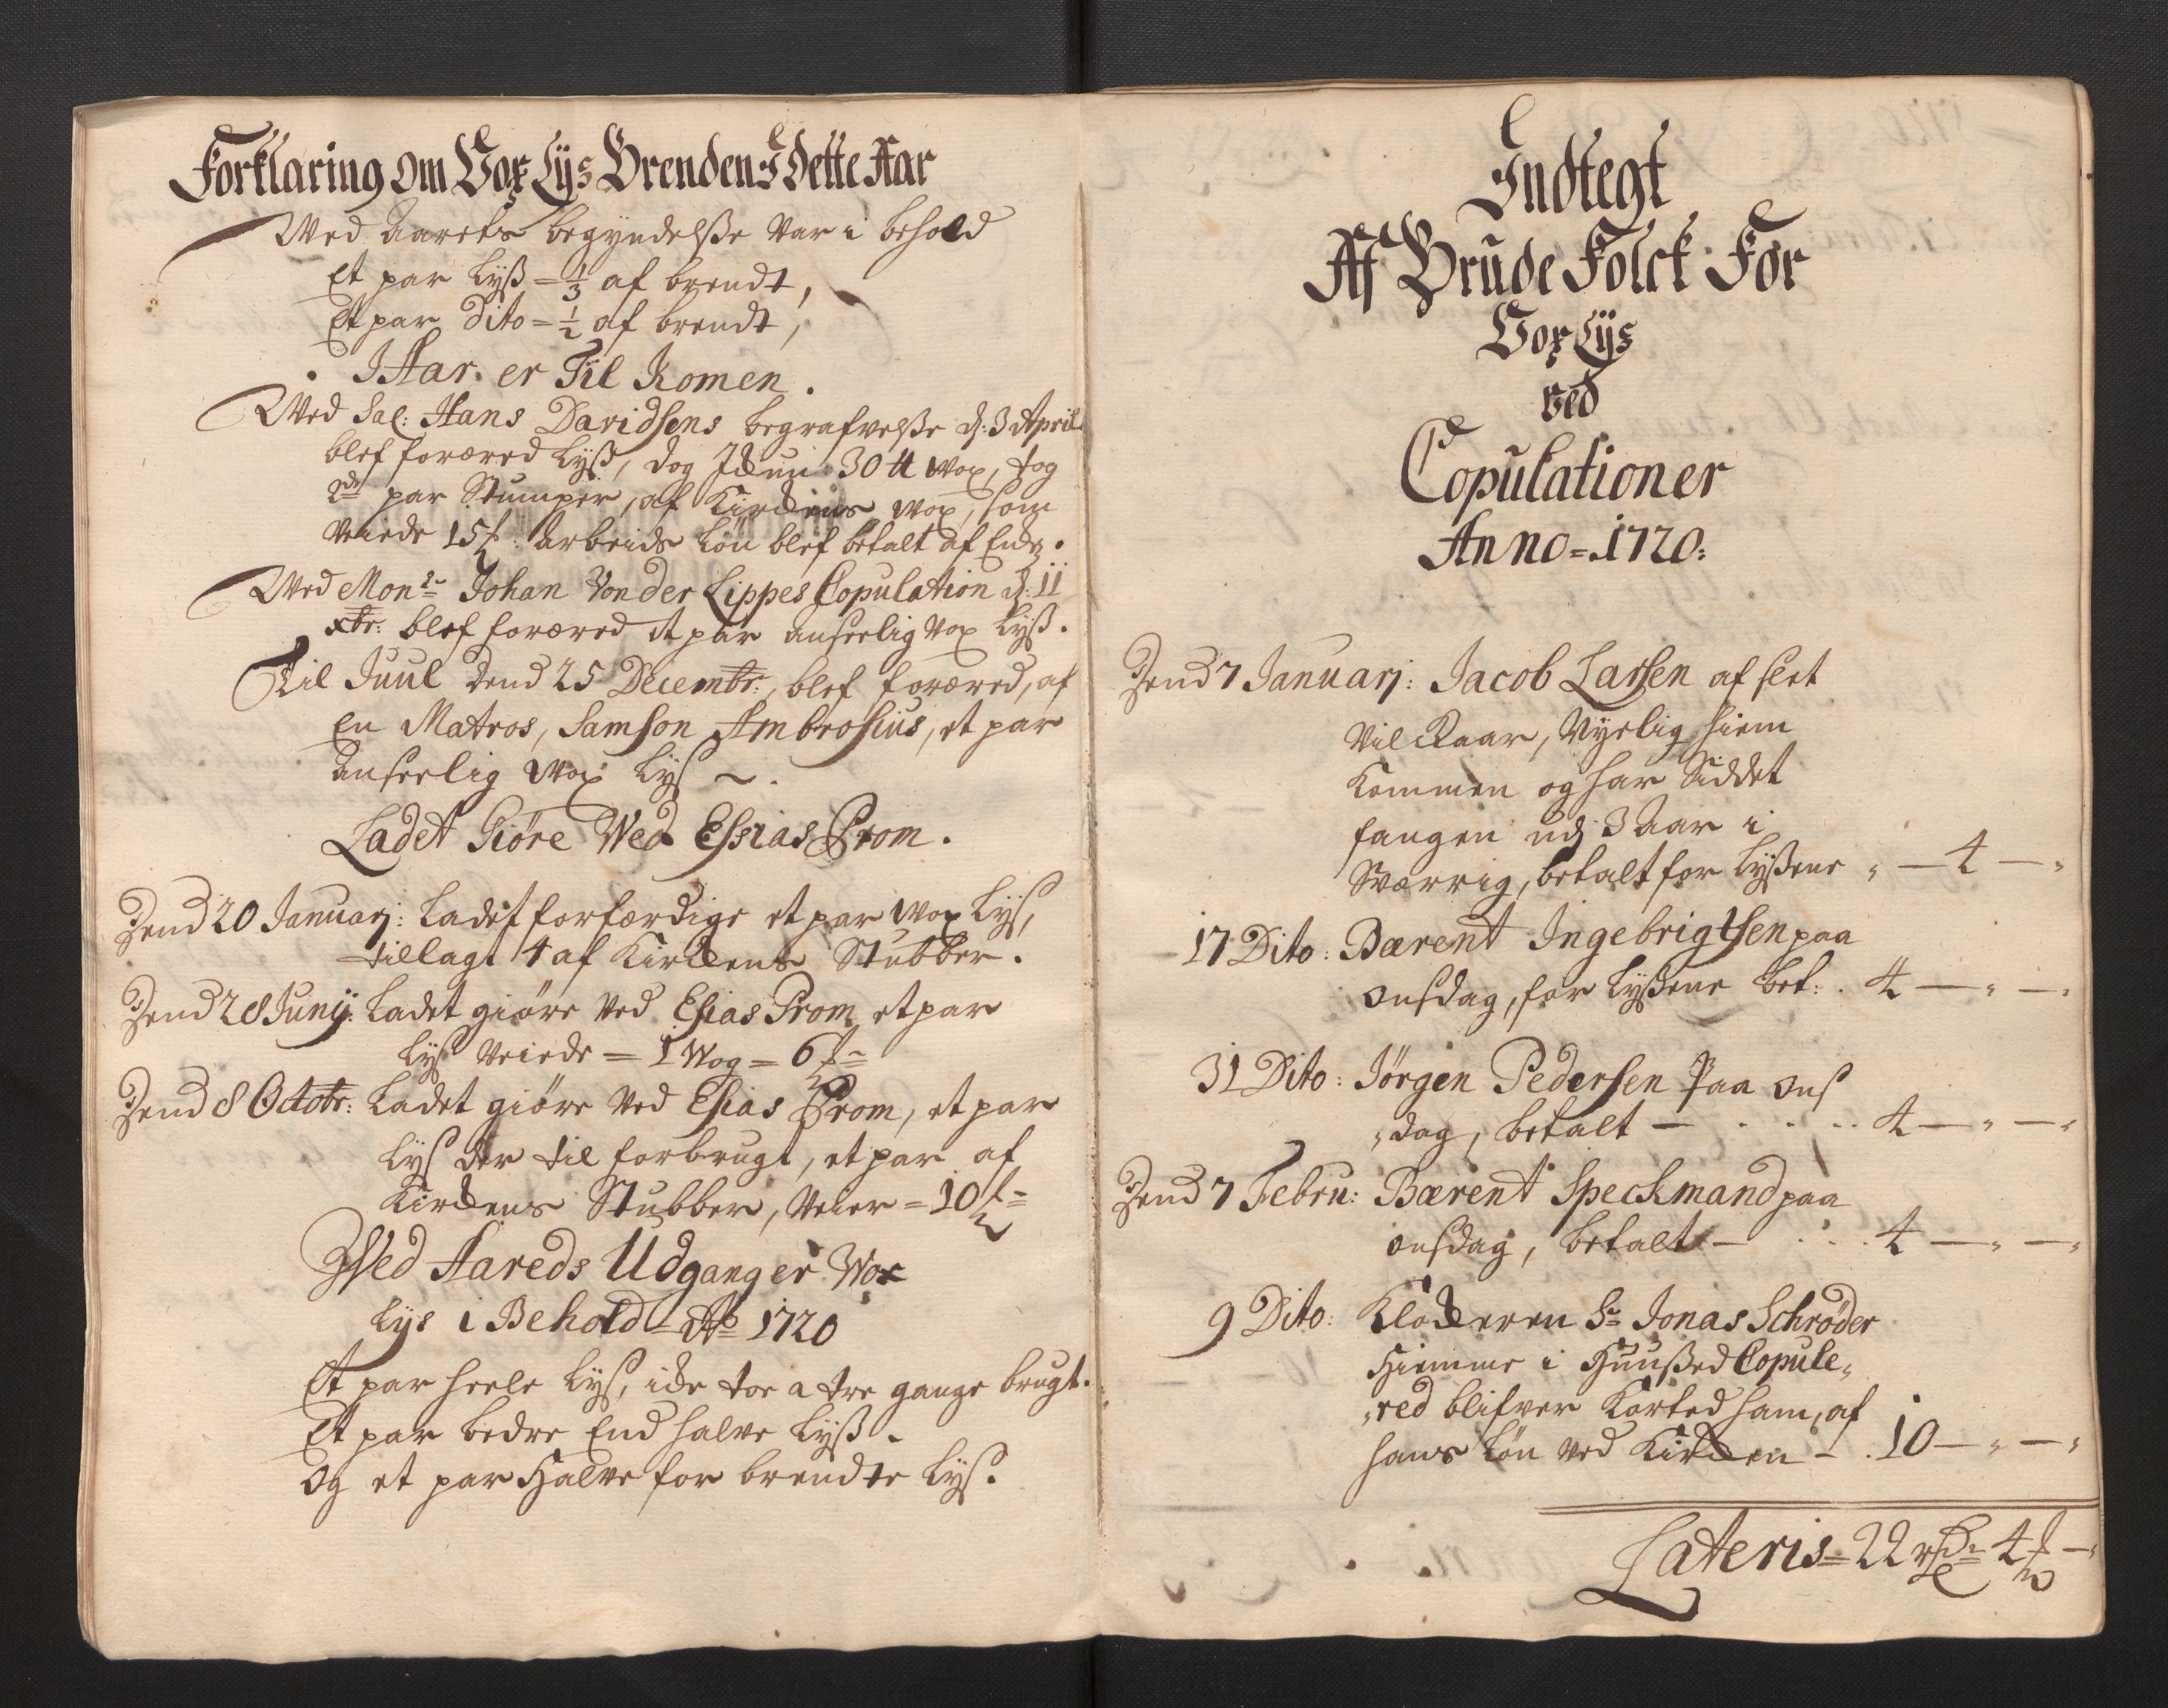 Forklaring om Vox Lys Brenden I dette Aar
Ved Aarets begyndelsße Var i behold
Et par Lyß = 1/3 af brendt,
Et par Dito = 1/2 af brendt,
I Aar er Til Komen.
Ved Sal: Hans Davidsens begrafvelße d: 3 April
blef foræred Lyß, dog Ickun 30 ℔ Wox, tog
2de par Stumper, af Kirckens Wox, som
Veiede 15 ℔: Arbeids Løn blef betalt af
Ved Monsr Johan Von der Lippes Copulation d: 11
xbr: blef foræred et par anseelig Vox Lyß.
Til Juul dend 25 Decembr:, blef foræred, af
En Matros, Samson Ambrosius, et par
anseelig Wox Lys ~.
Ladet Giöre Ved Essias Prom.
Dend 20 Januarj: Ladet forfærdige et par Wox Lys,
tillagt 4 af Kirckens Stubber.
Dend 28 Junij: Ladet giöre Ved Esias Prom et par
Lys Veiede = 1 Wog = 6 ℔
Dend 8 Octobr: Ladet giöre Ved Esias Prom, et par
Lys der til forbrugt, et par af
Kirckens Stubber, Veier = 10 ℔ =
Ved Aareds Udgang er Wox
Lys i Behold Ao 1720
Et par heele Lys, icke toe a tre gange brugt.
Et par bedre End halve Lyß.
Og et par Halve for brendte Lys.
Indtegt
Af Brude Folck For
Vox Lys
ved
Copulationer
Anno = 1720:
Dend 7 Januarj: Jacob Larsen af slet
Vilckaar, Nyelig hiem
Kommen og har Siddet
fangen udj 3 Aar i
Sværrig, betalt for Lyßene „ — 4 — „
17 Dito: Bærent Ingebrigtsen paa
Onsdag, for Lyßene bet: . 4 — „ — „
31 Dito: Jörgen Pedersen Paa Ons
„dag, betalt — . . . . 4 — „ — „
Dend 7 Febru: Bærent Speckmand paa
Onsdag, betalt — . . . 4 — „ — „
9 Dito: Klockeren Sr Jonas Schrøder
Hiemme i Huußed Copule„
„red blifver Korted ham, af
hans Løn ved Kircken — . 10 — „ — „
Lateris = 22 rdr 4 ß —